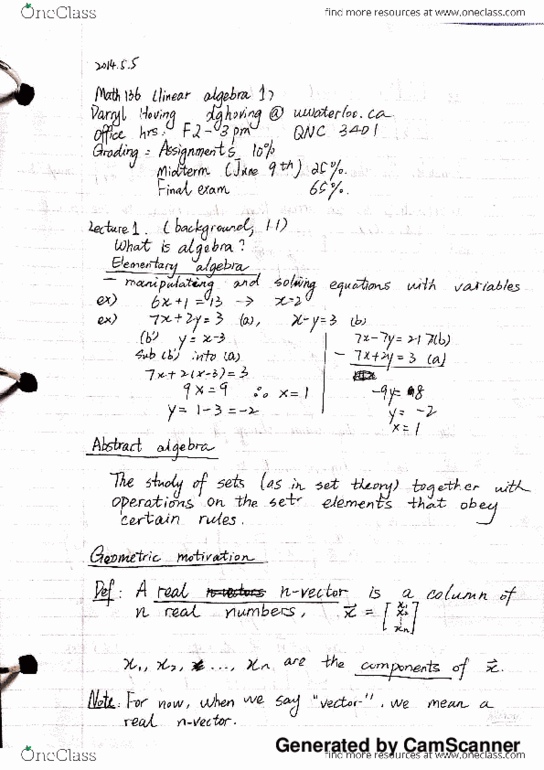 OneClass
find more resources at www.oneclass.com
2014.5.5
Math 136 (linear algebra 1)
Darryl Hoving dghoving @ uwaterloo.ca
office hrs: F 2-3 pm QNC 3401
Grading = Assignments 10%
Midterm (June 9th) 25%.
Final exam 65%.
Lecture 1. (background, 1.1)
What is algebra?
Elementary algebra
- manipulating and solving equations with variables
ex) 6x+1=13 → x=2
ex) 7x+2y=3 (a), x-y=3 (b)
(b) y=x-3
sub (b) into (a)
7x+2(x-3)=3
9x=9 ∴ x=1
y=1-3=-2
7x-7y=21 7(b)
- 7x+2y=3 (a)
-9y= 8
y= -2
x=1
Abstract algebra
The study of sets (as in set theory) together with
operations on the set elements that obey
certain rules.
Geometric motivation
Def: A real n-vector is a column of
n real numbers, x⃗ = [x₁ x₂ ⋮ xn]
x₁, x₂, ..., xn are the components of x⃗.
Note: For now, when we say "vector", we mean a
real n-vector.
Generated by CamScanner
OneClass
find more resources at www.oneclass.com